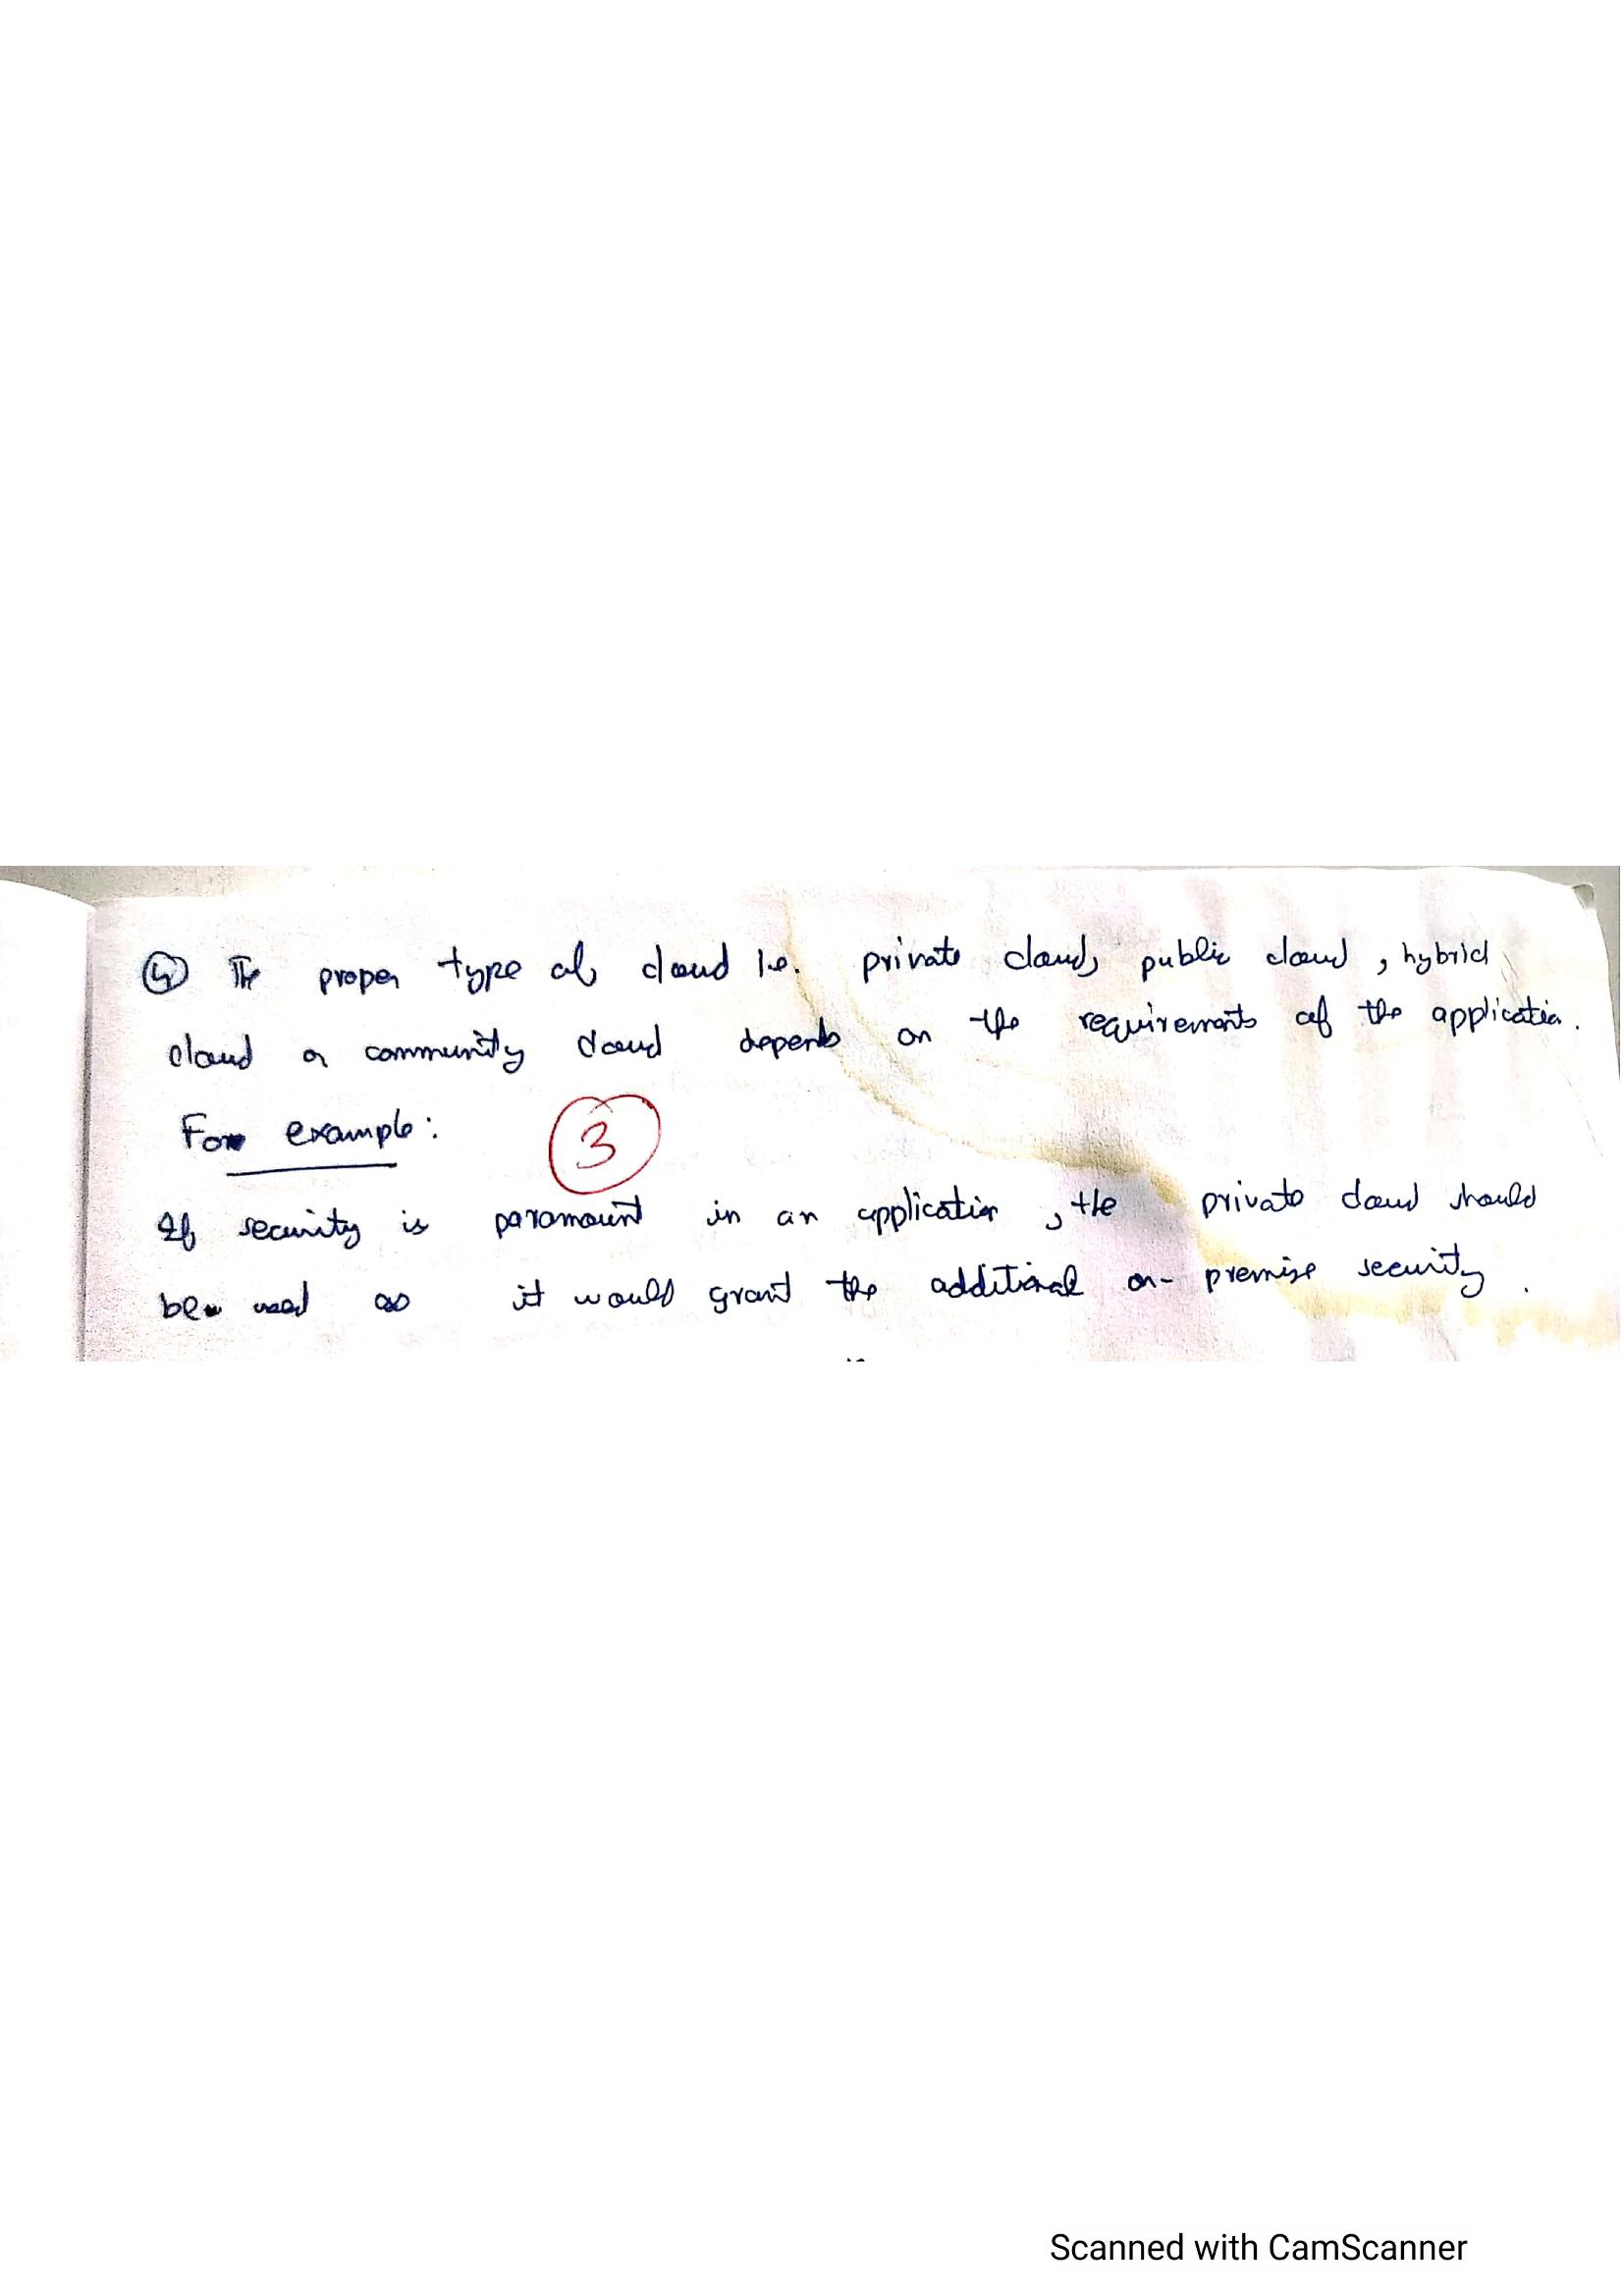 ④ The proper type of cloud i.e. private cloud, public cloud, hybrid
cloud or community cloud depends on the requirements of the application.
For example:
3
If security is paramount in an application, the private cloud should
be used as it would grant the additional on-premise security.
Scanned with CamScanner